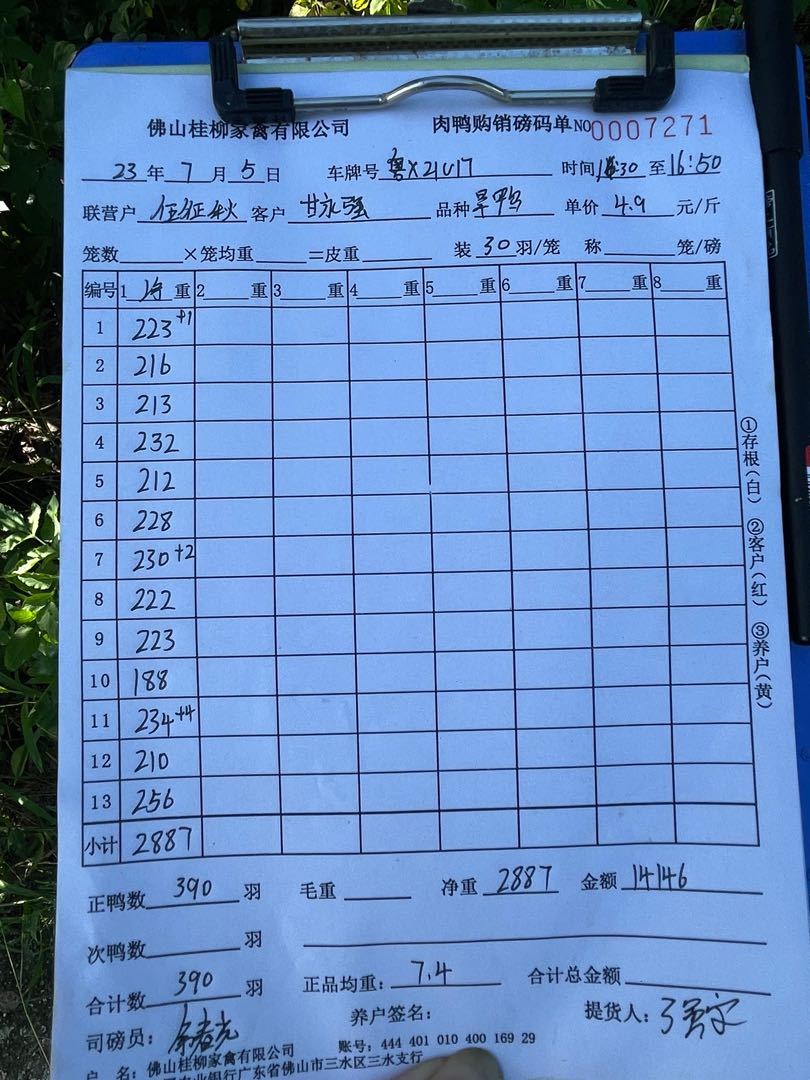 佛山桂柳家禽有限公司 肉鸭购销磅码单 NO 0007271
23 年 7 月 5 日 车牌号 粤X21U17 时间 30 至 16:50
联营户 伍征秋 客户 甘永强 品种 旱鸭 单价 4.9 元/斤
笼数 ×笼均重 =皮重 装 30 羽/笼 称 笼/磅
编号 1 净 重 2 重 3 重 4 重 5 重 6 重 7 重 8 重
1 223 +1
2 216
3 213
4 232
5 212
6 228
7 230 +2
8 222
9 223
10 188
11 234 +4
12 210
13 256
小计 2887
①存根(白) ②客户(红) ③养户(黄)
正鸭数 390 羽 毛重 净重 2887 金额 14146
次鸭数 羽
合计数 390 羽 正品均重: 7.4 合计总金额
司磅员: 养户签名: 提货人:
户 名: 佛山桂柳家禽有限公司 账号: 444 401 010 400 169 29
农业银行广东省佛山市三水区三水支行